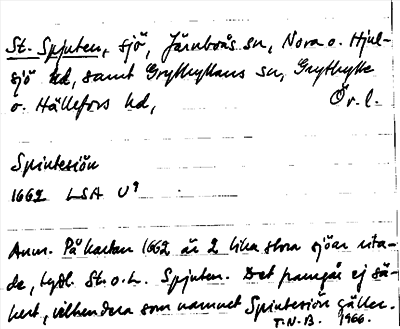 St. Spjuten, sjö, Järnboås sn, Nora o. Hjul-
sjö hd, samt Grythyttans sn, Grythytte
o. Hällefors hd, Ör. l.
Spintesiön
1662 LSA U9
Anm. På kartan 1662 är 2 lika stora sjöar rita-
de, tydl. St. o. L. Spjuten. Det framgår ej sä-
kert, vilkendera som namnet Spintesiön gäller.
T.N.B. 1966.